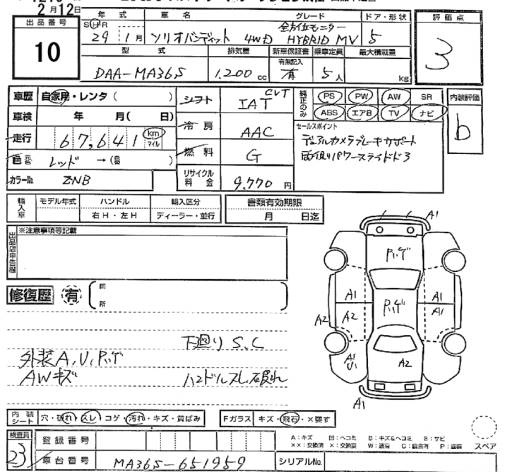 2月12日
出品番号
10
年式
車名
グレード
ドア・形状
評価点
29年 1月
ソリオバンディット 4WD
全方位モニター
HYBRID MV
5
3
型式
排気量
新車保証書
乗車定員
最大積載量
DAA-MA36S
1,200cc
有
5人
kg
車歴
自家用・レンタ( )
シフト
CVT
IAT
純正のみ
PS PW AW SR
ABS エアB TV ナビ
内装評価
b
車検
年 月( 日)
冷房
AAC
セールスポイント
デュアルカメラブレーキサポート
両側パワースライドドア
走行
67,641
km
マイル
燃料
G
色
レッド →(色 )
リサイクル料金
9,770円
カラーNo.
ZNB
輸入車
モデル年式
ハンドル
右H・左H
輸入区分
ディーラー・並行
書類有効期限
月 日迄
※注意事項等記載
修復歴 有
前
所
下回りS,C
外装A,U,P,ゲ
AWキズ
ハンドルスレ・破れ
A1
P,ゲ
A1
A1
A2
A2
P,ゲ
A1
A1
U1
A2
A1
内装シート
穴・破れ・スレ・コゲ・汚れ・キズ・黄ばみ
Fガラス
キズ・飛石・×要す
スペア
検査員
23
登録番号
A:キズ U:ヘコミ B:キズ&ヘコミ S:サビ
車台番号
MA36S-651959
シリアルNo.